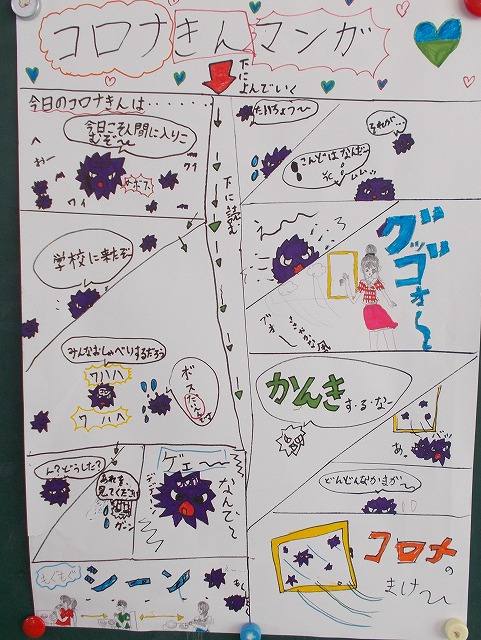 コロナきんマンガ
下に
よんでいく
今日のコロナきんは・・・・・・
今日こそ人間に入りこ
むぞ〜
おー
ワイ
ワイ
下に読む
学校に来たぞ
みんなおしゃべりするだろう
ワハハ
ワハハ
ボス
たいへんです
ん？どうした？
あれを、
見てください
ゲェ〜
なんて〜
もぐもぐ
シーン
たいちょう〜
それが…
こんどはなんだ
えー
グッゴォ〜
さわやかな風
かんき
す・る・なー
あ、
どんどんなかまが〜
コロナ
の
まけ〜